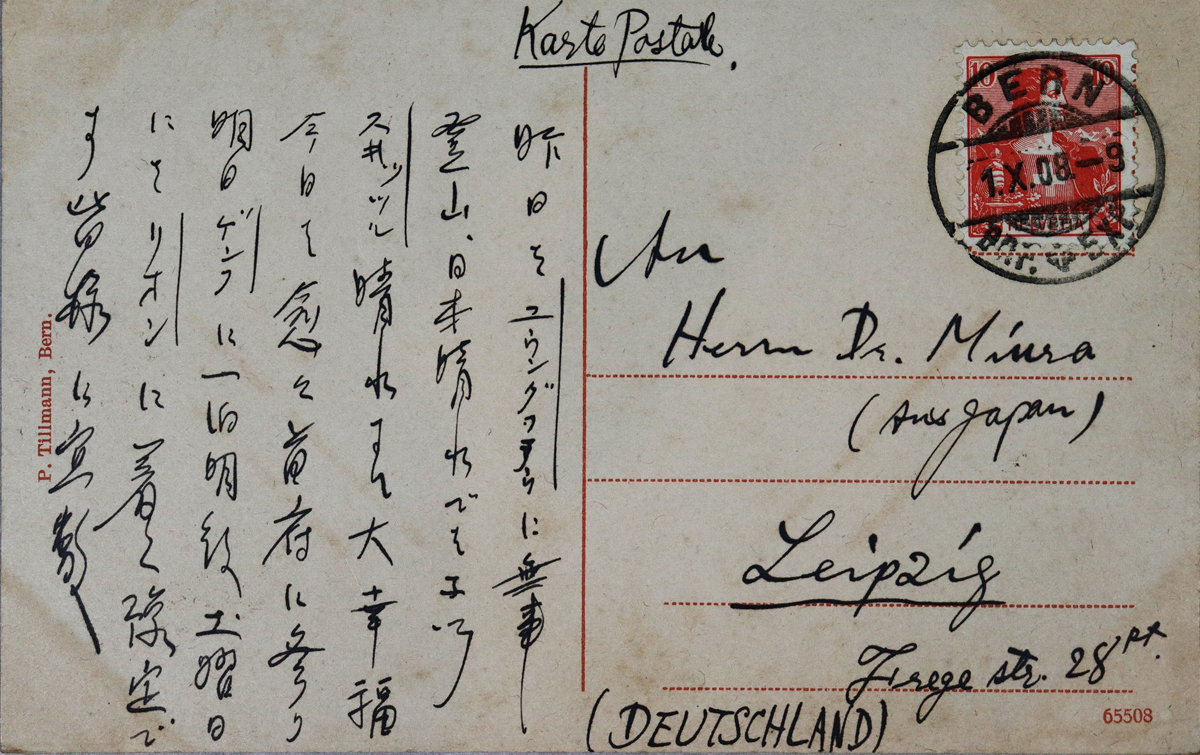 Karte Postale.
10 10
BERN
1.X.08.-9
HELVETIA
An
Herrn Dr. Miura
(Aus Japan)
Leipzig
Frege str. 28
(DEUTSCHLAND)
昨日はユウングフラウに無事
登山、日本晴れでも
スヰッツル晴れ 大幸福
今日は愈々首府に参り
明日ゲンフに一泊明後土曜日
にはリオンに着く予定で
す 皆様に宜敷
P. Tillmann, Bern.
65508